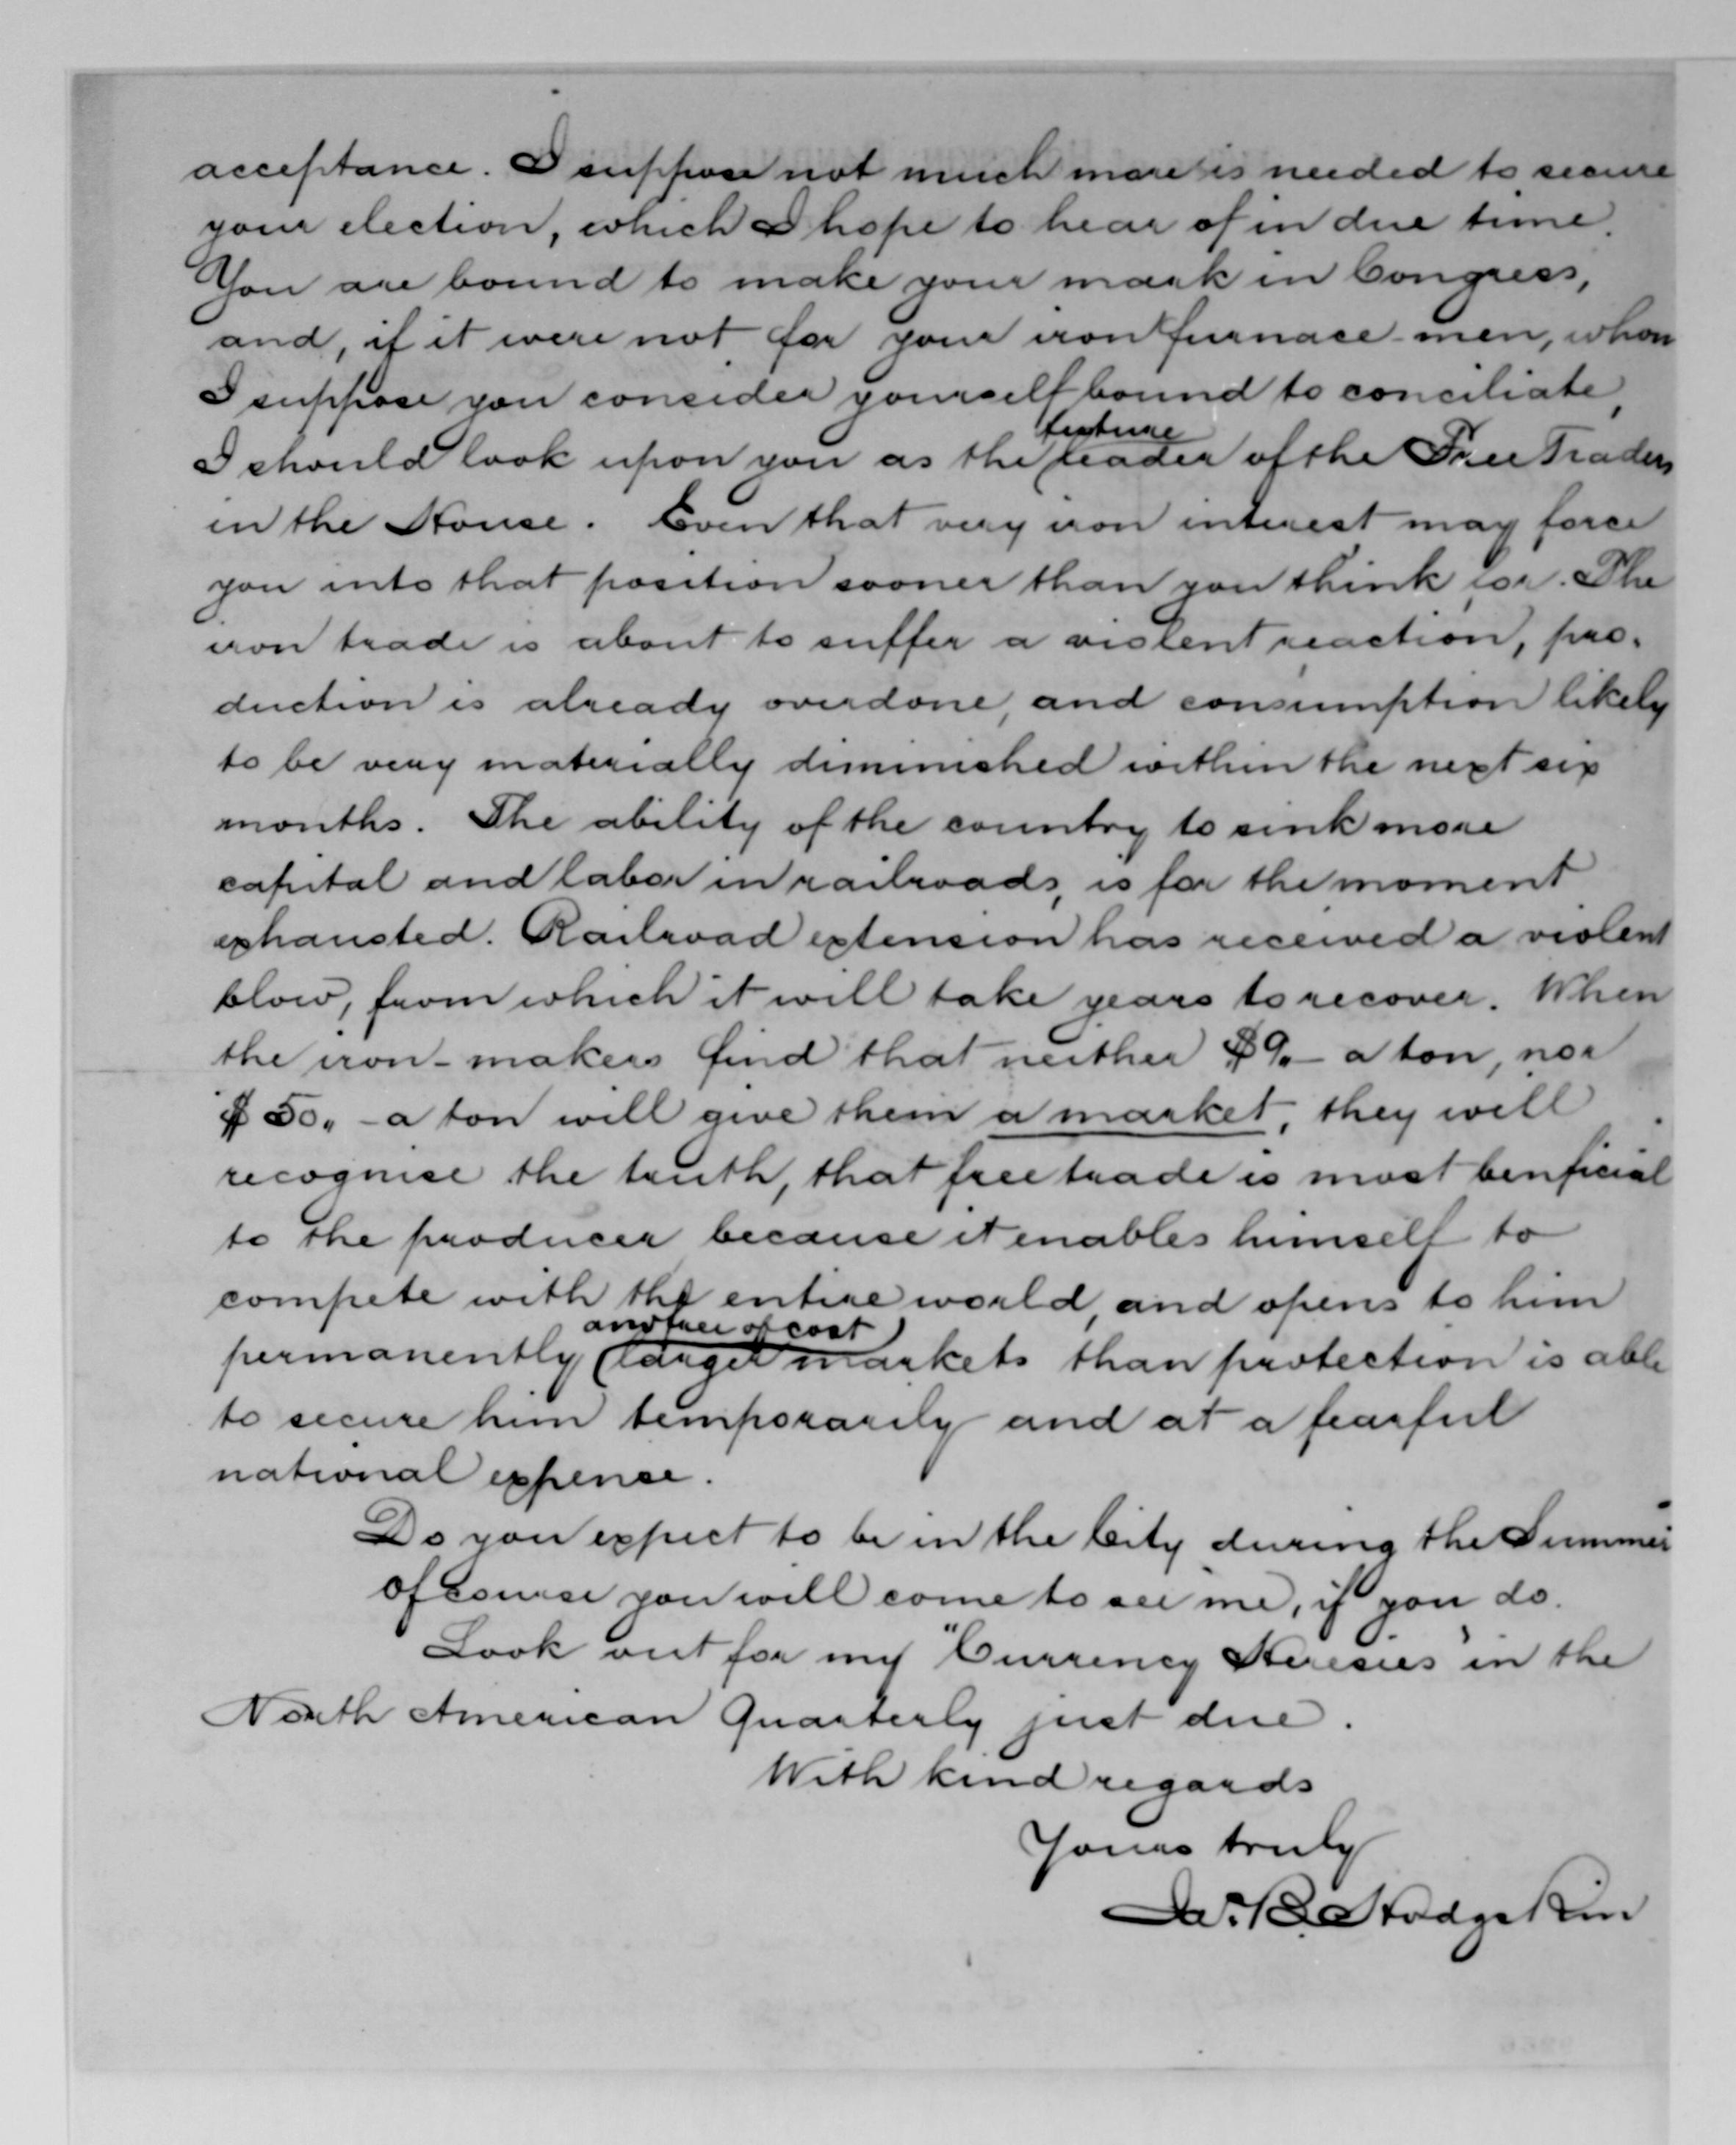 acceptance. I suppose not much more is needed to secure
your election, which I hope to hear of in due time.
You are bound to make your mark in Congress,
and, if it were not for your iron furnace-men, whom
I suppose you consider yourself bound to conciliate,
future
I should look upon you as the leader of the Free Traders
in the House. Even that very iron interest may force
you into that position sooner than you think for. The
iron trade is about to suffer a violent reaction, pro-
duction is already overdone, and consumption likely
to be very materially diminished within the next six
months. The ability of the country to sink more
capital and labor in railroads, is for the moment
exhausted. Railroad extension has received a violent
blow, from which it will take years to recover. When
the iron-makers find that neither $9.- a ton, nor
$50,,- a ton will give them a market, they will
recognise the truth, that free trade is most benficial
to the producer because it enables himself to
compete with the entire world, and opens to him
and free of cost
permanently larger markets than protection is able
to secure him temporarily and at a fearful
national expense.
Do you expect to be in the City during the Summer
Of course you will come to see me, if you do.
Look out for my "Currency Heresies" in the
North American Quarterly just due.
With kind regards
Yours truly
Jas. B. Hodgskin